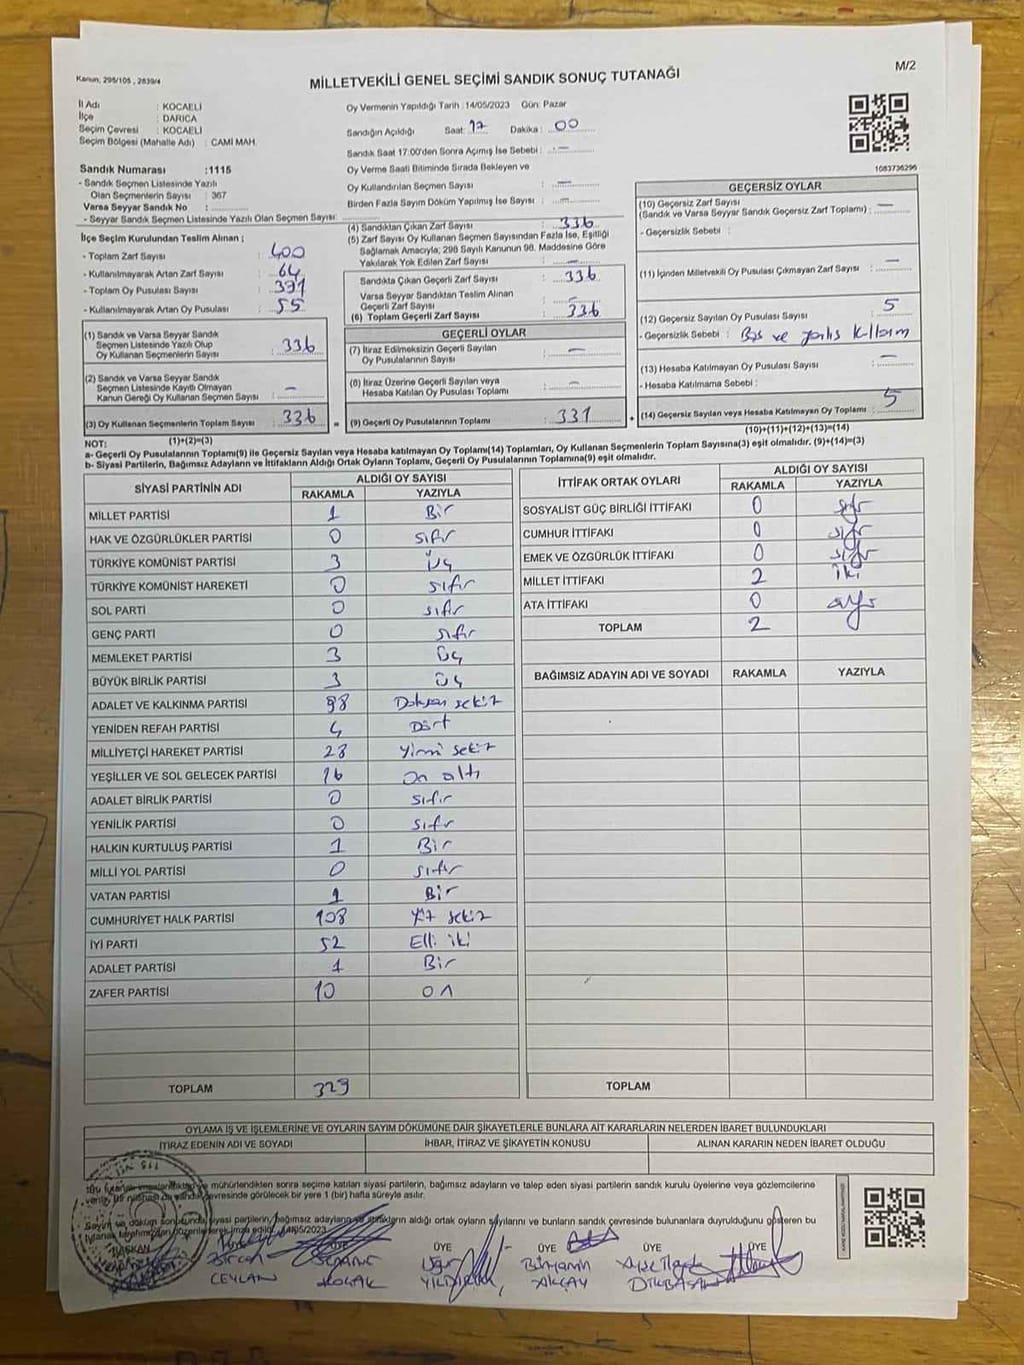 Kanun, 298/105 , 2839/4
M/2
MİLLETVEKİLİ GENEL SEÇİMİ SANDIK SONUÇ TUTANAĞI
İl Adı : KOCAELİ
İlçe : DARICA
Seçim Çevresi : KOCAELİ
Seçim Bölgesi (Mahalle Adı) : CAMİ MAH.
Oy Vermenin Yapıldığı Tarih :14/05/2023 Gün: Pazar
Sandığın Açıldığı Saat: 17 Dakika : 00
Sandık Saat 17:00'den Sonra Açılmış İse Sebebi : —
Oy Verme Saati Bitiminde Sırada Bekleyen ve
Oy Kullandırılan Seçmen Sayısı : —
Birden Fazla Sayım Döküm Yapılmış İse Sayısı : —
1083736296
Sandık Numarası :1115
- Sandık Seçmen Listesinde Yazılı
Olan Seçmenlerin Sayısı : 367
Varsa Seyyar Sandık No :
- Seyyar Sandık Seçmen Listesinde Yazılı Olan Seçmen Sayısı:
İlçe Seçim Kurulundan Teslim Alınan ;
- Toplam Zarf Sayısı : 400
- Kullanılmayarak Artan Zarf Sayısı : 64
- Toplam Oy Pusulası Sayısı : 391
- Kullanılmayarak Artan Oy Pusulası : 55
(1) Sandık ve Varsa Seyyar Sandık
Seçmen Listesinde Yazılı Olup
Oy Kullanan Seçmenlerin Sayısı : 336
(2) Sandık ve Varsa Seyyar Sandık
Seçmen Listesinde Kayıtlı Olmayan
Kanun Gereği Oy Kullanan Seçmen Sayısı : —
(3) Oy Kullanan Seçmenlerin Toplam Sayısı : 336
(1)+(2)=(3)
(4) Sandıktan Çıkan Zarf Sayısı : 336
(5) Zarf Sayısı Oy Kullanan Seçmen Sayısından Fazla İse, Eşitliği
Sağlamak Amacıyla; 298 Sayılı Kanunun 98. Maddesine Göre
Yakılarak Yok Edilen Zarf Sayısı : —
Sandıkta Çıkan Geçerli Zarf Sayısı : 336
Varsa Seyyar Sandıktan Teslim Alınan
Geçerli Zarf Sayısı : —
(6) Toplam Geçerli Zarf Sayısı : 336
GEÇERLİ OYLAR
(7) İtiraz Edilmeksizin Geçerli Sayılan
Oy Pusulalarının Sayısı : —
(8) İtiraz Üzerine Geçerli Sayılan veya
Hesaba Katılan Oy Pusulası Toplamı : —
= (9) Geçerli Oy Pusulalarının Toplamı : 331
GEÇERSİZ OYLAR
(10) Geçersiz Zarf Sayısı : —
(Sandık ve Varsa Seyyar Sandık Geçersiz Zarf Toplamı)
- Geçersizlik Sebebi :
(11) İçinden Milletvekili Oy Pusulası Çıkmayan Zarf Sayısı : —
(12) Geçersiz Sayılan Oy Pusulası Sayısı : 5
- Geçersizlik Sebebi : Boş ve yanlış kullanım
(13) Hesaba Katılmayan Oy Pusulası Sayısı : —
- Hesaba Katılmama Sebebi :
+ (14) Geçersiz Sayılan veya Hesaba Katılmayan Oy Toplamı : 5
(10)+(11)+(12)+(13)=(14)
NOT:
a- Geçerli Oy Pusulasının Toplamı(9) ile Geçersiz Sayılan veya Hesaba katılmayan Oy Toplamı(14) Toplamları, Oy Kullanan Seçmenlerin Toplam Sayısına(3) eşit olmalıdır. (9)+(14)=(3)
b- Siyasi Partilerin, Bağımsız Adayların ve İttifakların Aldığı Ortak Oyların Toplamı, Geçerli Oy Pusulalarının Toplamına(9) eşit olmalıdır.
SİYASİ PARTİNİN ADI ALDIĞI OY SAYISI
RAKAMLA YAZIYLA
MİLLET PARTİSİ 1 Bir
HAK VE ÖZGÜRLÜKLER PARTİSİ 0 sıfır
TÜRKİYE KOMÜNİST PARTİSİ 3 Üç
TÜRKİYE KOMÜNİST HAREKETİ 0 sıfır
SOL PARTİ 0 sıfır
GENÇ PARTİ 0 sıfır
MEMLEKET PARTİSİ 3 Üç
BÜYÜK BİRLİK PARTİSİ 3 üç
ADALET VE KALKINMA PARTİSİ 98 Doksan sekiz
YENİDEN REFAH PARTİSİ 4 Dört
MİLLİYETÇİ HAREKET PARTİSİ 28 Yirmi sekiz
YEŞİLLER VE SOL GELECEK PARTİSİ 16 On altı
ADALET BİRLİK PARTİSİ 0 sıfır
YENİLİK PARTİSİ 0 sıfır
HALKIN KURTULUŞ PARTİSİ 1 Bir
MİLLİ YOL PARTİSİ 0 sıfır
VATAN PARTİSİ 1 Bir
CUMHURİYET HALK PARTİSİ 108 Yüz sekiz
İYİ PARTİ 52 Elli iki
ADALET PARTİSİ 1 Bir
ZAFER PARTİSİ 10 on
TOPLAM 329
İTTİFAK ORTAK OYLARI ALDIĞI OY SAYISI
RAKAMLA YAZIYLA
SOSYALİST GÜÇ BİRLİĞİ İTTİFAKI 0 sıfır
CUMHUR İTTİFAKI 0 sıfır
EMEK VE ÖZGÜRLÜK İTTİFAKI 0 sıfır
MİLLET İTTİFAKI 2 İki
ATA İTTİFAKI 0
TOPLAM 2
BAĞIMSIZ ADAYIN ADI VE SOYADI RAKAMLA YAZIYLA
TOPLAM
OYLAMA İŞ VE İŞLEMLERİNE VE OYLARIN SAYIM DÖKÜMÜNE DAİR ŞİKAYETLERLE BUNLARA AİT KARARLARIN NELERDEN İBARET BULUNDUKLARI
İTİRAZ EDENİN ADI VE SOYADI İHBAR, İTİRAZ VE ŞİKAYETİN KONUSU ALINAN KARARIN NEDEN İBARET OLDUĞU
mühürlendikten sonra seçime katılan siyasi partilerin, bağımsız adayların ve talep eden siyasi partilerin sandık kurulu üyelerine veya gözlemcilerine
çevresinde görülecek bir yere 1 (bir) hafta süreyle asılır.
Sayım ve döküm sonucunda, siyasi partilerin, bağımsız adayların ve ittifakların aldığı ortak oyların sayılarını ve bunların sandık çevresinde bulunanlara duyurulduğunu gösteren bu
BAŞKAN ÜYE ÜYE ÜYE ÜYE
Bircan Uğur Bünyamin
CEYLAN KOÇAK YILDIRIM AKÇAY DİKBASAN